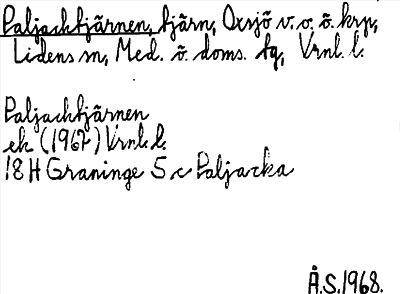 Paljacktjärnen, tjärn, Oxsjö v. o. ö. krp,
Lidens sn, Med. ö. doms. tg, Vrnl. l.
Paljacktjärnen
ek (1967) Vrnl. l.
18 H Graninge 5 c Paljacka
Å.S. 1968.